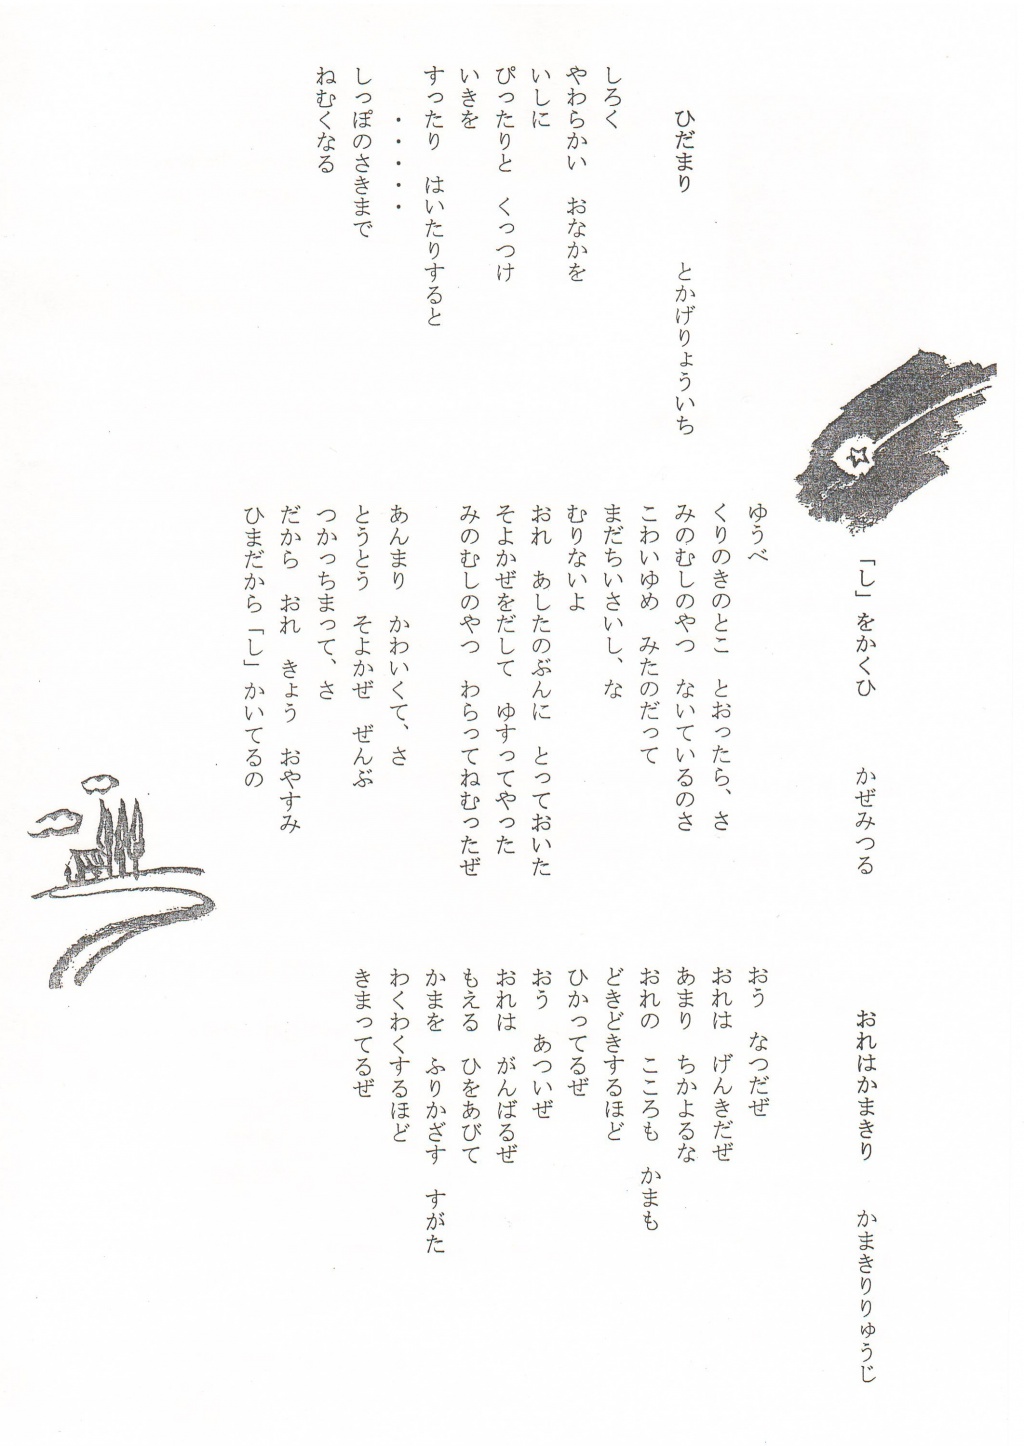 ひだまり　　　とかげりょういち
しろく
やわらかい　おなかを
いしに
ぴったりと　くっつけ
いきを
すったり　はいたりすると
・・・・・
しっぽのさきまで
ねむくなる
「し」をかくひ　　　かぜみつる
ゆうべ
くりのきのとこ　とおったら、さ
みのむしのやつ　ないているのさ
こわいゆめ　みたのだって
まだちいさいし、な
むりないよ
おれ　あしたのぶんに　とっておいた
そよかぜをだして　ゆすってやった
みのむしのやつ　わらってねむったぜ
あんまり　かわいくて、さ
とうとう　そよかぜ　ぜんぶ
つかっちまって、さ
だから　おれ　きょう　おやすみ
ひまだから「し」かいてるの
おれはかまきり　　かまきりりゅうじ
おう　なつだぜ
おれは　げんきだぜ
あまり　ちかよるな
おれの　こころも　かまも
どきどきするほど
ひかってるぜ
おう　あついぜ
おれは　がんばるぜ
もえる　ひをあびて
かまを　ふりかざす　すがた
わくわくするほど
きまってるぜ